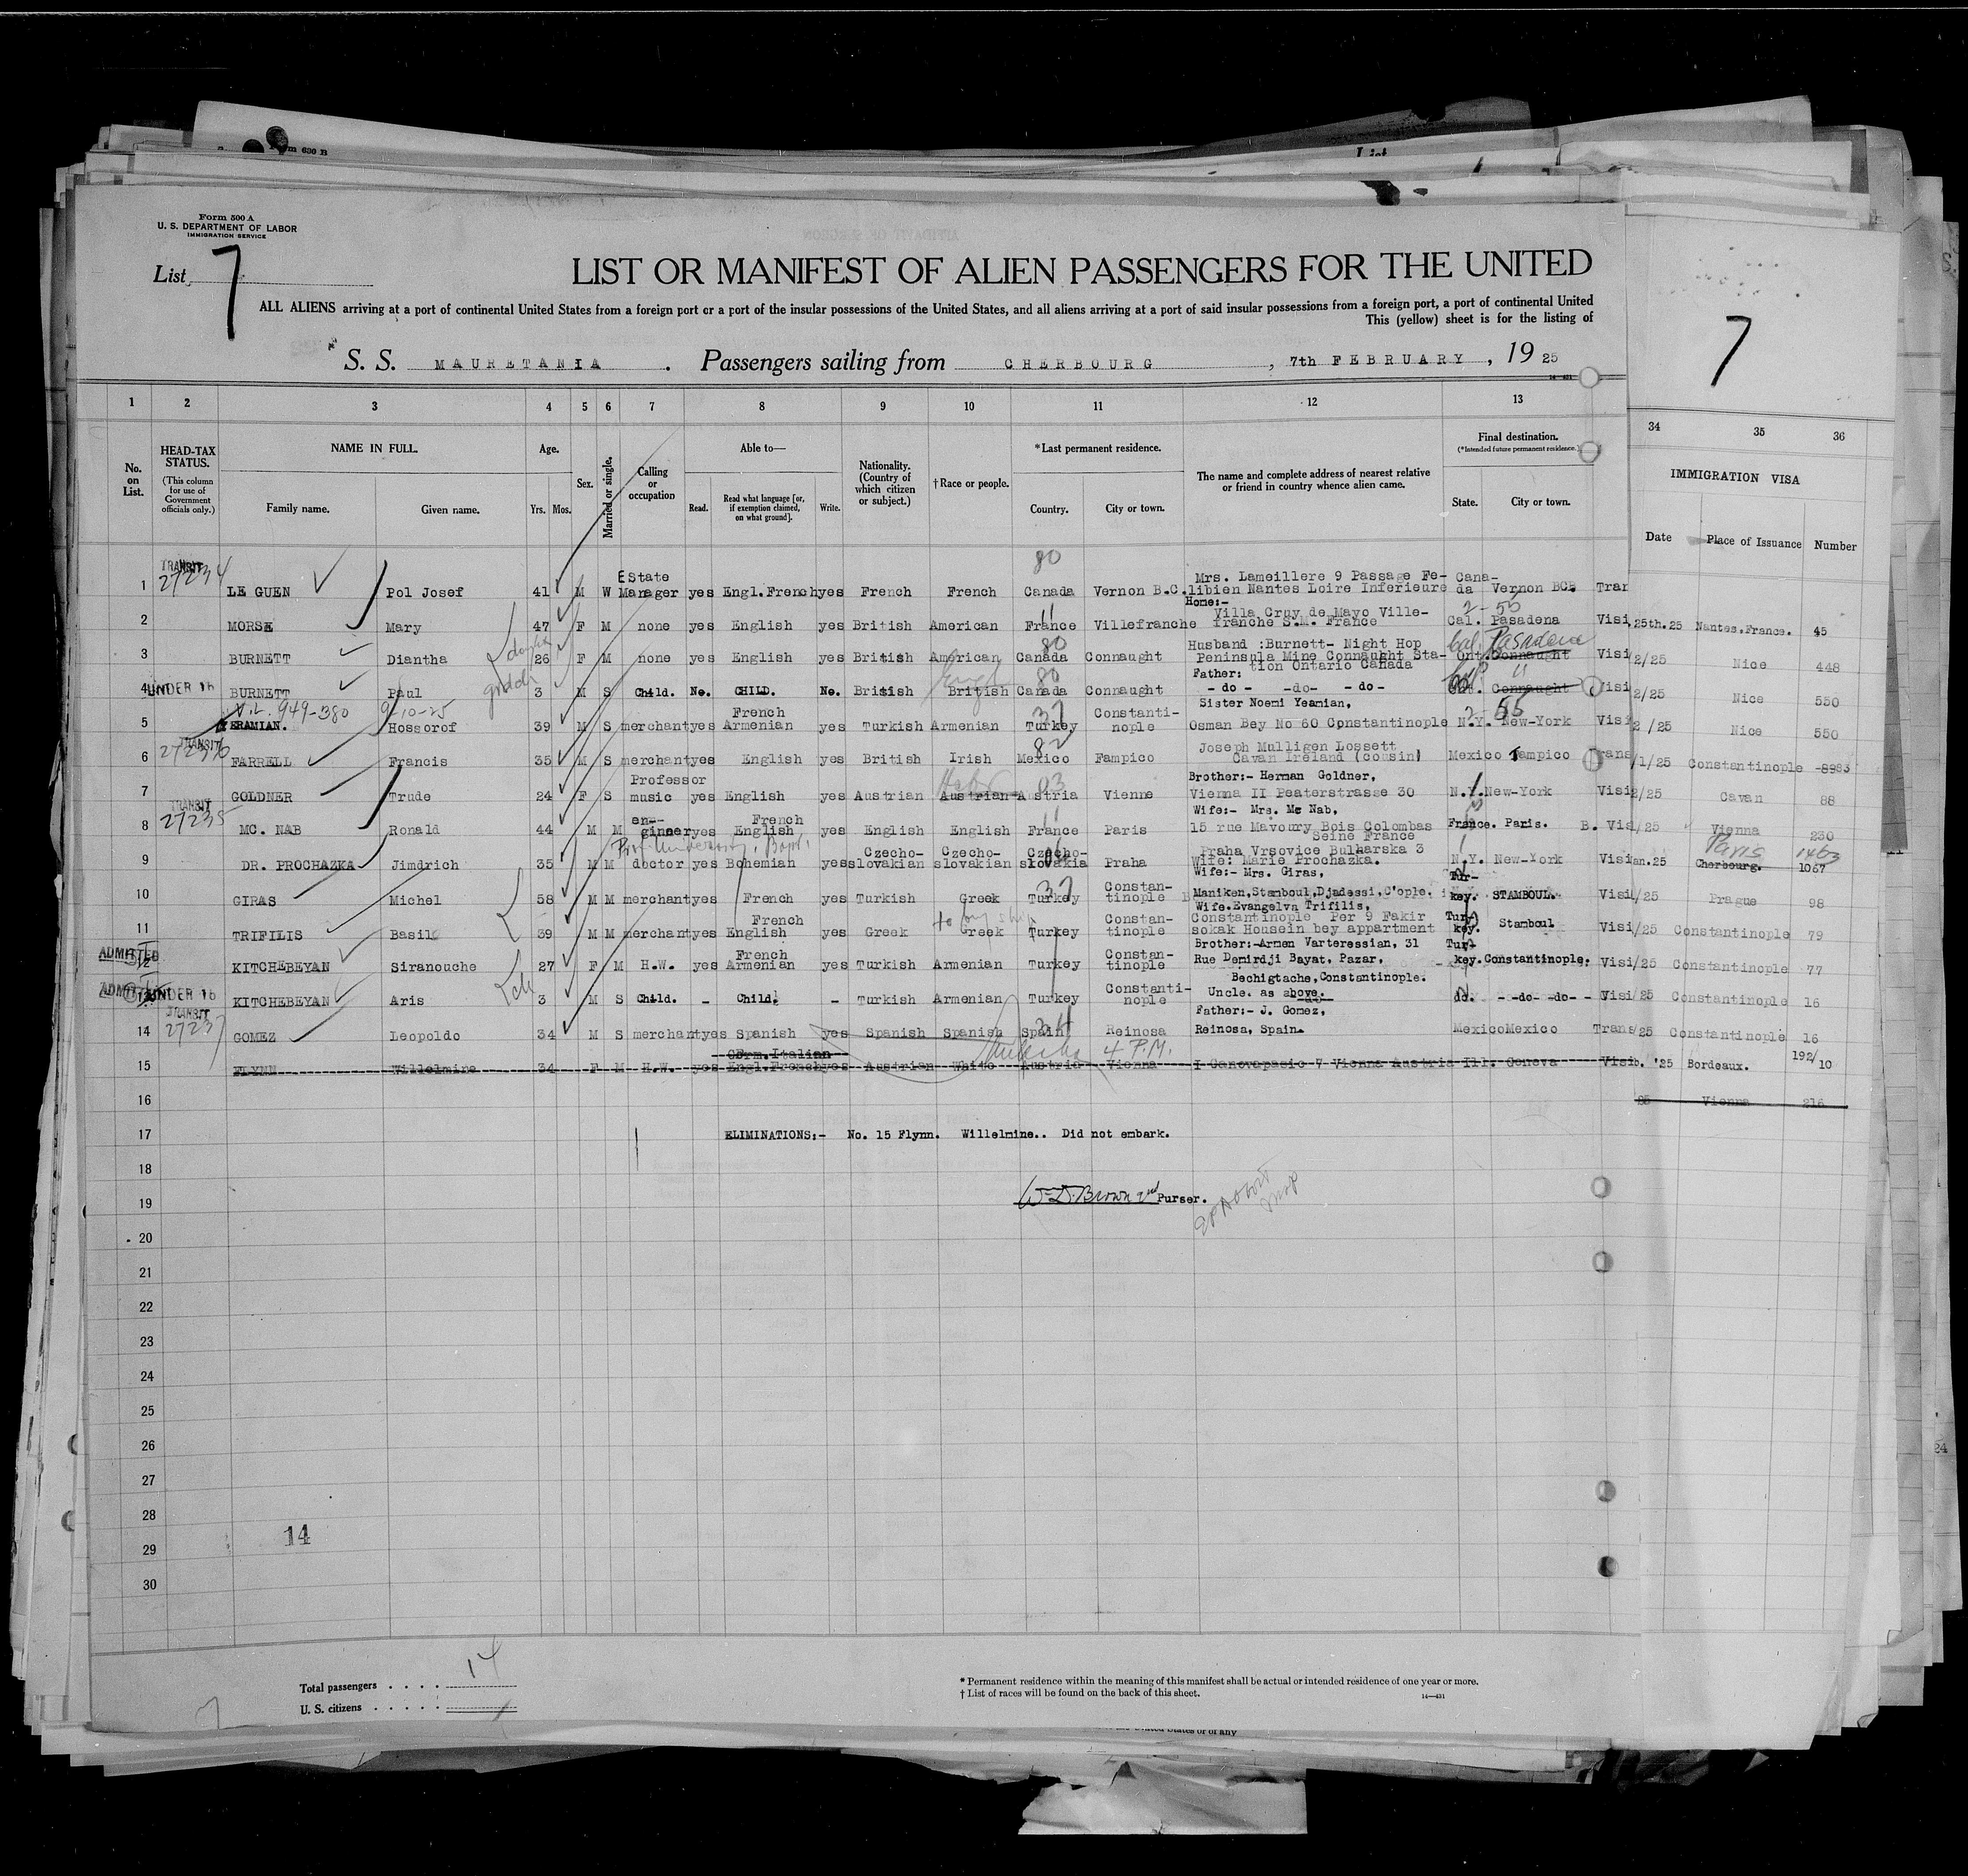 Form 500 A
U. S. DEPARTMENT OF LABOR
IMMIGRATION SERVICE
List 7
LIST OR MANIFEST OF ALIEN PASSENGERS FOR THE UNITED
ALL ALIENS arriving at a port of continental United States from a foreign port or a port of the insular possessions of the United States, and all aliens arriving at a port of said insular possessions from a foreign port, a port of continental United
This (yellow) sheet is for the listing of
S. S. MAURETANIA. Passengers sailing from CHERBOURG, 7th FEBRUARY, 19 25
7
1 2 3 4 5 6 7 8 9 10 11 12 13 34 35 36
No. on List.
HEAD-TAX STATUS.
(This column for use of Government officials only.)
NAME IN FULL.
Family name. Given name.
Age.
Yrs. Mos.
Sex.
Married or single.
Calling or occupation
Able to—
Read. Read what language [or, if exemption claimed, on what ground]. Write.
Nationality. (Country of which citizen or subject.)
† Race or people.
*Last permanent residence.
Country. City or town.
The name and complete address of nearest relative or friend in country whence alien came.
Final destination.
(*Intended future permanent residence.)
State. City or town.
IMMIGRATION VISA
Date Place of Issuance Number
TRANSIT 27234
1 LE GUEN Pol Josef 41 M W EState Manager yes Engl.French yes French French 80 Canada Vernon B.C. Mrs. Lameillere 9 Passage Fe- libien Nantes Loire Inferieure Cana- da Vernon BC. Tran
2 MORSE Mary 47 F M none yes English yes British American 11 France Villefranche Home:- Villa Cruy de Mayo Ville- franche S.M. France 2-55 Cal. Pasadena Visi 25th.25 Nantes.France. 45
3 BURNETT Diantha 26 F M none yes English yes British American 80 Canada Connaught Husband :Burnett- Night Hop Peninsula Mine Connaught Sta- tion Ontario Canada Cal. Pasadena Ont. Connaught Visi 2/25 Nice 448
UNDER 16
4 BURNETT Paul 3 M S Child. No. CHILD. No. British British 80 Canada Connaught Father: - do - -do- - do- Connaught Visi 2/25 Nice 550
949-380 9-10-25
5 ERAMIAN. Hosgorof 39 M S merchant yes French Armenian yes Turkish Armenian 37 Turkey Constanti- nople Sister Noemi Yeamian, Osman Bey No 60 Constantinople 2-55 N.Y. New-York Visi 2 /25 Nice 550
TRANSIT 27236
6 FARRELL Francis 35 M S merchant yes English yes British Irish 82 Mexico Fampico Joseph Mulligen Lossett Cavan Ireland (cousin) Mexico Tampico Trans /1/25 Constantinople -8983
7 GOLDNER Trude 24 F S Professor music yes English yes Austrian Austrian 03 Austria Vienne Brother:- Herman Goldner, Vienna II Peaterstrasse 30 N.Y. New-York Visi 2/25 Cavan 88
TRANSIT 27235
8 MC. NAB Ronald 44 M M en- gineer yes French English yes English English 11 France Paris Wife:- Mrs. Mc Nab, 15 rue Mavoury Bois Colombas Seine France France. Paris. B. Vis /25 Vienna 230
9 DR. PROCHAZKA Jimdrich 35 M M doctor yes Bohemian yes Czecho- slovakian Czecho- slovakian Czecho- slovakia Praha Praha Vrsovice Bulharska 3 Wife: Marie Prochazka. N.Y. New-York Visi an.25 Paris Cherbourg. 1463 1067
10 GIRAS Michel 58 M M merchant yes French yes Turkish Greek 37 Turkey Constan- tinople Wife:- Mrs. Giras, Maniken,Stamboul,Djadessi,C'ople. Tur- key. STAMBOUL. Visi /25 Prague 98
11 TRIFILIS Basil 39 M M merchant yes French English yes Greek Greek Turkey Constan- tinople Wife.Evangelva Trifilis, Constantinople Per 9 Fakir sokak Housein bey appartment Tur- key. Stamboul Visi /25 Constantinople 79
ADMITTED
12 KITCHEBEYAN Siranouche 27 F M H.W. yes French Armenian yes Turkish Armenian Turkey Constan- tinople Brother:-Armen Varteressian, 31 Rue Demirdji Bayat, Pazar, Bechigtache,Constantinople. Tur- key. Constantinople. Visi /25 Constantinople 77
ADMITTED UNDER 16
13 KITCHEBEYAN Aris 3 M S Child. - Child. - Turkish Armenian Turkey Constanti- nople Uncle. as above. do. - -do- -do- - Visi /25 Constantinople 16
TRANSIT 27237
14 GOMEZ Leopoldo 34 M S merchant yes Spanish yes Spanish Spanish 24 Spain Reinosa Father:- J. Gomez, Reinosa, Spain. Mexico Mexico Trans /25 Constantinople 16
15 FLYNN Willelmine 34 F M H.W. yes GErm.Italian Engl.French yes Austrian White Austria Vienna I Canovapasic 7 Vienna Austria Ill. Geneva Visi b. '25 Bordeaux. 192/10
4 P.M.
16 25 Vienna 216
17 ELIMINATIONS:- No. 15 Flynn. Willelmine.. Did not embark.
18
19 W. D. Brown 2nd Purser.
20
21
22
23
24
25
26
27
28
14
29
30
Total passengers . . . . 14
U. S. citizens . . . . .
* Permanent residence within the meaning of this manifest shall be actual or intended residence of one year or more.
† List of races will be found on the back of this sheet.
14—431